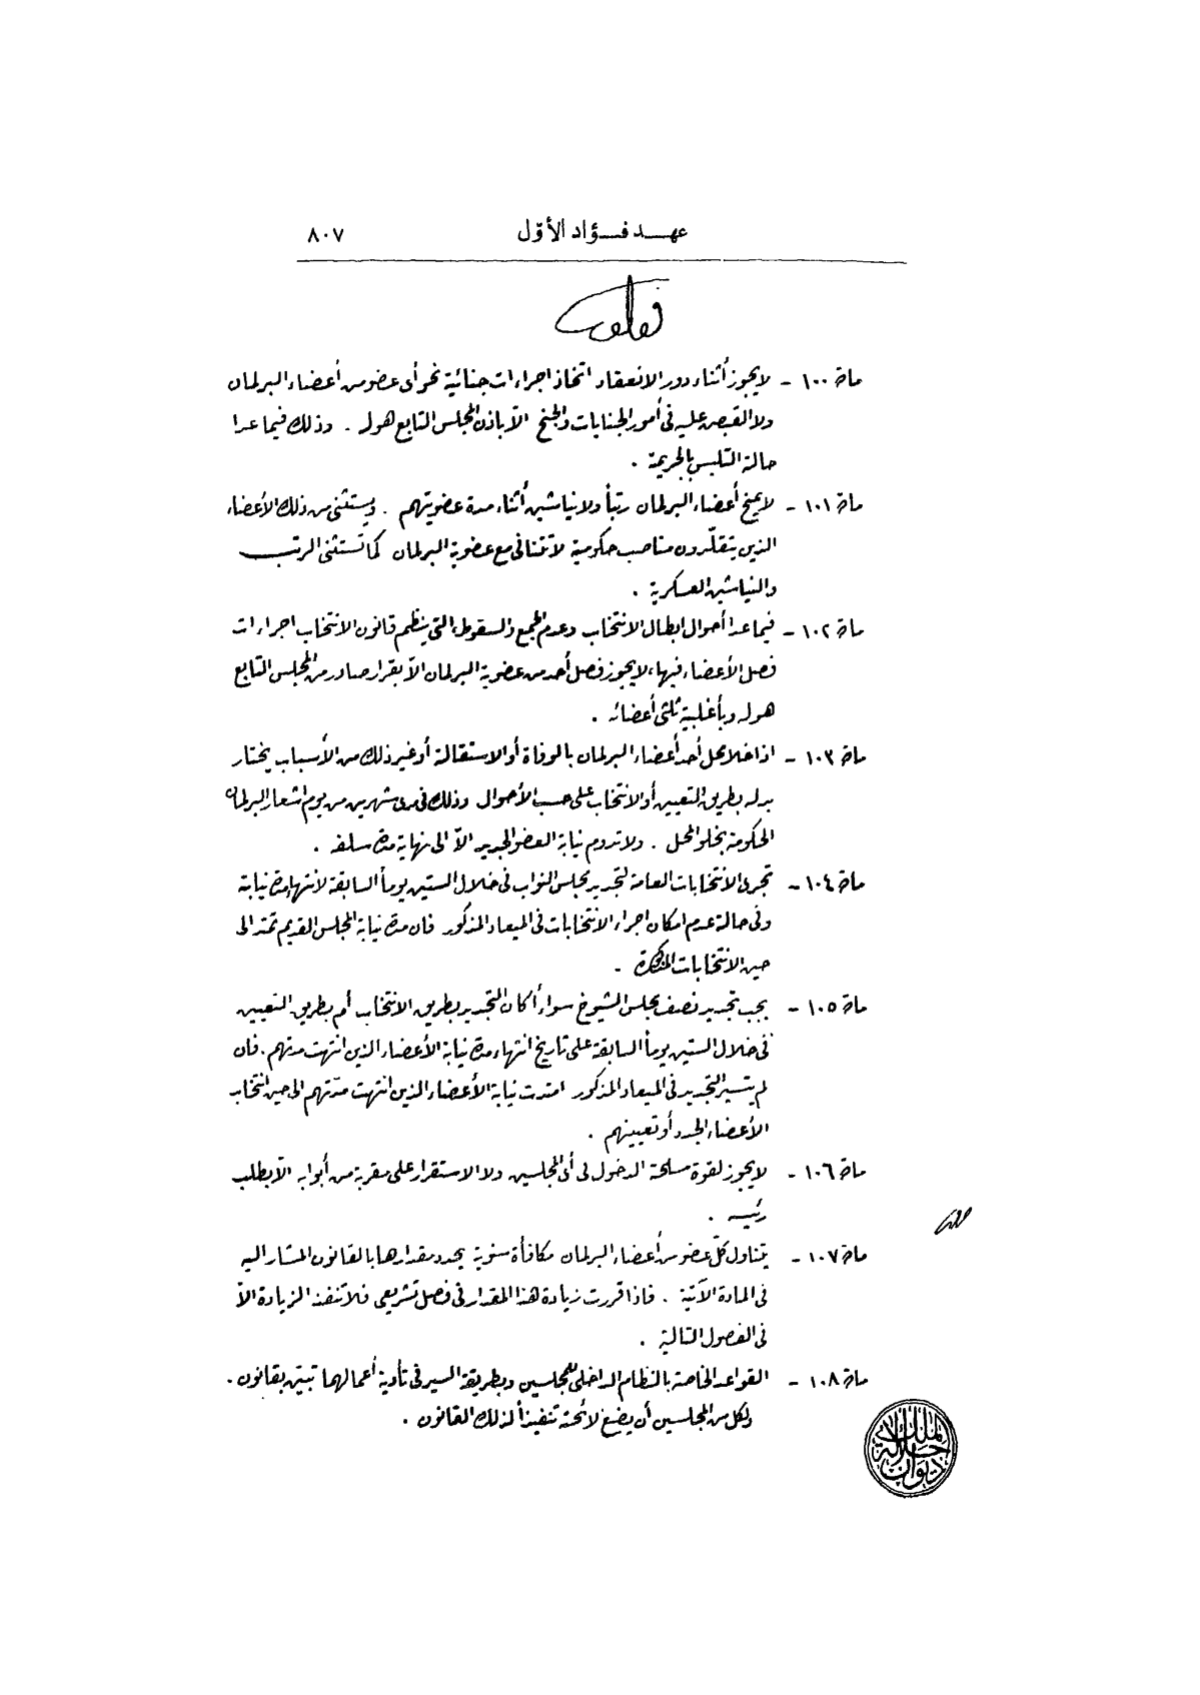 عهد فؤاد الأوّل
٨٠٧
مادة ١٠٠ - لا يجوز أثناء دور الانعقاد اتخاذ اجراءات جنائية نحو أى عضو من أعضاء البرلمان
ولا القبض عليه فى أمور الجنايات والجنح الاّ باذن المجلس التابع هو له . وذلك فيما عدا
حالة التلبس بالجريمة .
مادة ١٠١ - لا يمنح أعضاء البرلمان رتباً ولا نياشين أثناء مدة عضويتهم . ويستثنى من ذلك الأعضاء
الذين يتقلّدون مناصب حكومية لا تتنافى مع عضوية البرلمان كما تستثنى الرتب
والنياشين العسكرية .
مادة ١٠٢ - فيما عدا أحوال ابطال الانتخاب وعدم الجمع والسقوط، التى ينظم قانون الانتخاب اجراءات
فصل الأعضاء فيها، لا يجوز فصل أحد من عضوية البرلمان الاّ بقرار صادر من المجلس التابع
هو له وبأغلبية ثلثى أعضائه .
مادة ١٠٣ - اذا خلا محل أحد أعضاء البرلمان بالوفاة أو الاستقالة أو غير ذلك من الأسباب يختار
بدله بطريق التعيين أو الانتخاب على حسب الأحوال وذلك فى مدى شهرين من يوم اشعار البرلمان
الحكومة بخلو المحل . ولا تدوم نيابة العضو الجديد الاّ الى نهاية مدة سلفه .
مادة ١٠٤ - تجرى الانتخابات العامة لتجديد مجلس النواب فى خلال الستين يوماً السابقة لانتهاء مدة نيابته
وفى حالة عدم امكان اجراء الانتخابات فى الميعاد المذكور فان مدة نيابة المجلس القديم تمتد الى
حين الانتخابات المذكورة .
مادة ١٠٥ - يجب تجديد نصف مجلس الشيوخ سواء أكان التجديد بطريق الانتخاب أم بطريق التعيين
فى خلال الستين يوماً السابقة على تاريخ انتهاء مدة نيابة الأعضاء الذين انتهت مدتهم . فان
لم يتيسر التجديد فى الميعاد المذكور امتدت نيابة الأعضاء الذين انتهت مدّتهم الى حين انتخاب
الأعضاء الجدد أو تعيينهم .
مادة ١٠٦ - لا يجوز لقوة مسلحة الدخول فى أى المجلسين ولا الاستقرار على مقربة من أبوابه الاّ بطلب
رئيسه .
مادة ١٠٧ - يتناول كلّ عضو من أعضاء البرلمان مكافأة سنوية يحدد مقدارها بالقانون المشار اليه
فى المادة الآتية . فاذا قررت زيادة هذا المقدار فى فصل تشريعى فلا تنفذ الزيادة الاّ
فى الفصول التالية .
مادة ١٠٨ - القواعد الخاصة بالنظام الداخلى للمجلسين وبطريقة السير فى تأدية أعمالهما تبيّن بقانون .
ولكل من المجلسين أن يضع لائحته تنفيذاً لذلك القانون .
ديوان جلالة الملك